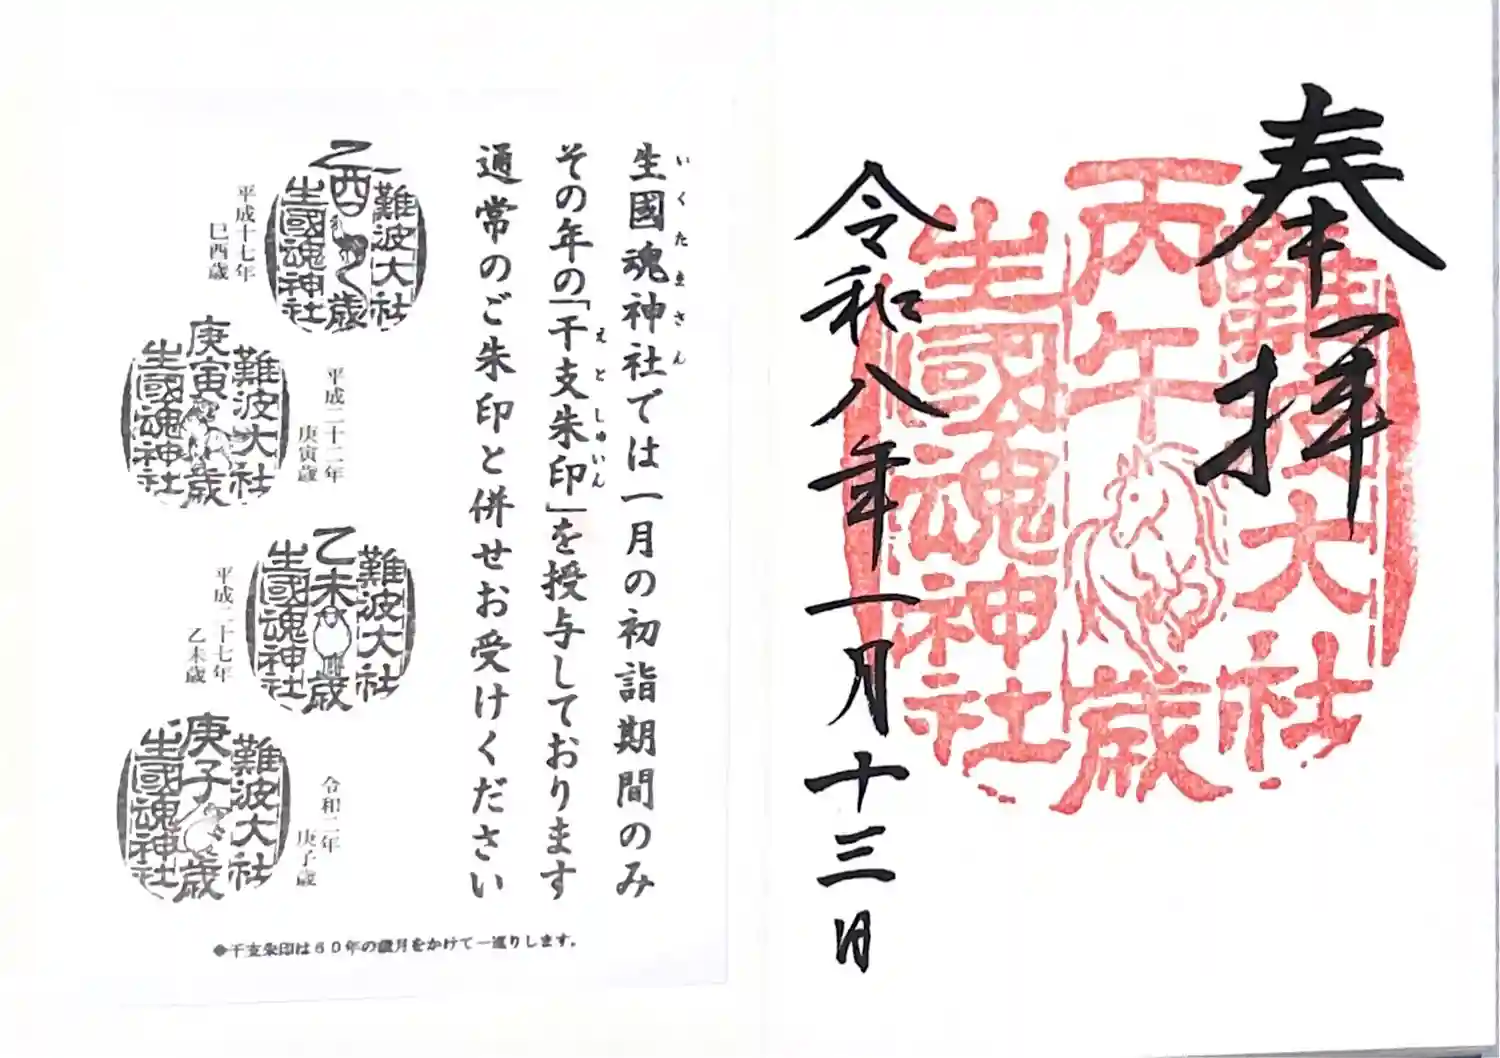 奉拝
難波大社
丙午歳
生國魂神社
令和八年一月十三日
生國魂神社では一月の初詣期間のみ
いくたまさん
その年の「干支朱印」を授与しております
えとしゅいん
通常のご朱印と併せお受けください
難波大社
乙酉歳
生國魂神社
平成十七年
巳酉歳
難波大社
庚寅歳
生國魂神社
平成二十二年
庚寅歳
難波大社
乙未歳
生國魂神社
平成二十七年
乙未歳
難波大社
庚子歳
生國魂神社
令和二年
庚子歳
◆干支朱印は60年の歳月をかけて一巡りします。